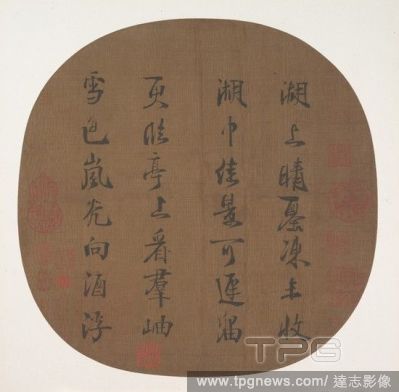 湖上晴凍未收
湖中佳景可遲留
更臨亭上看羣岫
雪色嵐光向酒浮
TPG
www.tpgnews.com/達志影像